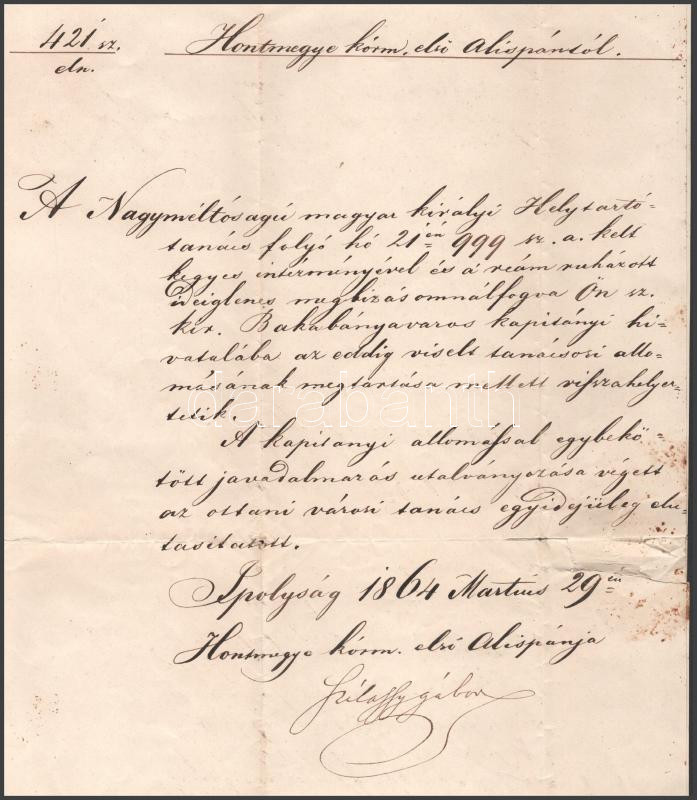 421 sz.
eln.
Hontmegye korm. első Alispántól.
A Nagyméltóságú magyar királyi Helytartó-
tanács folyó hó 21én 999 sz. a. kelt
kegyes intézményével és a reám ruházott
ideiglenes megbizásomnálfogva Ön sz.
kir. Bakabányavaros kapitányi hi-
vatalába az eddig viselt tanácsosi állo-
másának megtartása mellett visszahelyez-
tetik.
A kapitanyi allomással egybekö-
tött javadalmazás utalványozása végett
az ottani városi tanács egyidejüleg elu-
tasitatott.
Ipolyság 1864 Martius 29én
Hontmegye korm. első Alispánja
Szilassy Gábor
darabanth